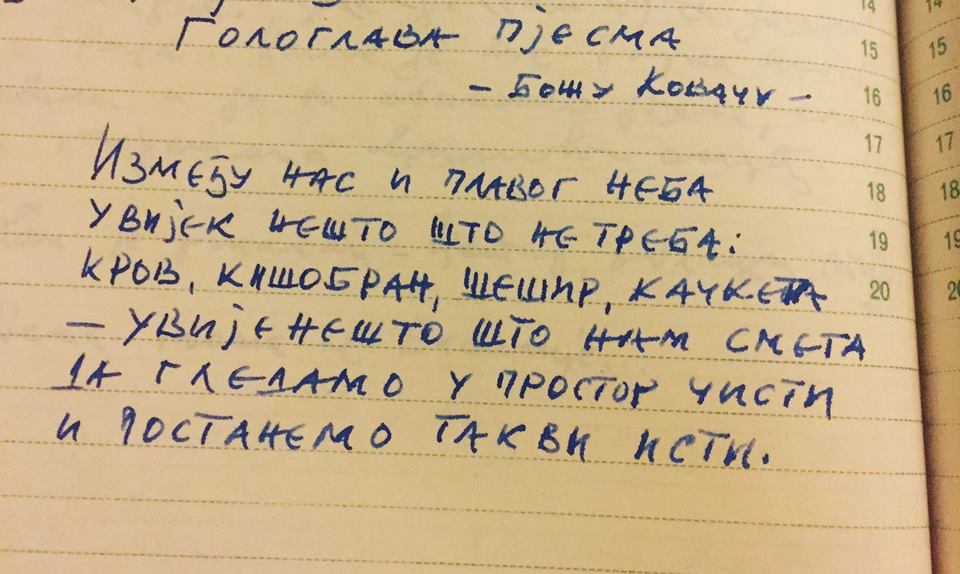 Гологлава пјесма
– Божу Ковачу –
Између нас и плавог неба
увијек нешто што не треба:
кров, кишобран, шешир, качкета
– увије нешто што нам смета
да гледамо у простор чисти
и постанемо такви исти.
14
15
16
17
18
19
20
14
15
16
17
18
19
20